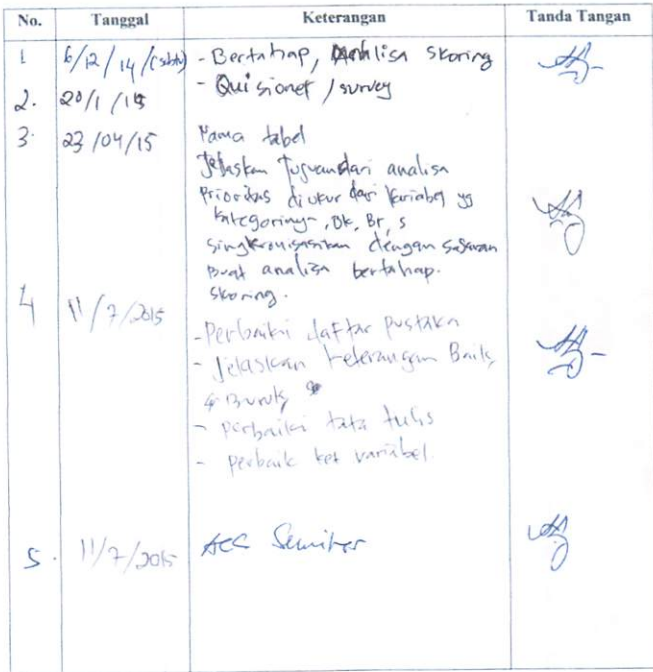 No. Tanggal Keterangan Tanda Tangan
1 6/12/14 (sabtu) - Bertahap, Analisa Skoring
- Quisioner / survey
2. 20/1/15
3. 23/04/15 Nama tabel
Jelaskan Tujuan dari analisa
Prioritas diukur dari Variabel yg
kategorinya, Bk, Br, S
singkronisasikan dengan sasaran
Buat analisa bertahap.
Skoring.
4 11/7/2015
- Perbaiki daftar pustaka
- Jelaskan keterangan Baik,
& Buruk,
- perbaiki tata tulis
- perbaik ket variabel.
5. 11/7/2015 ACC Seminar